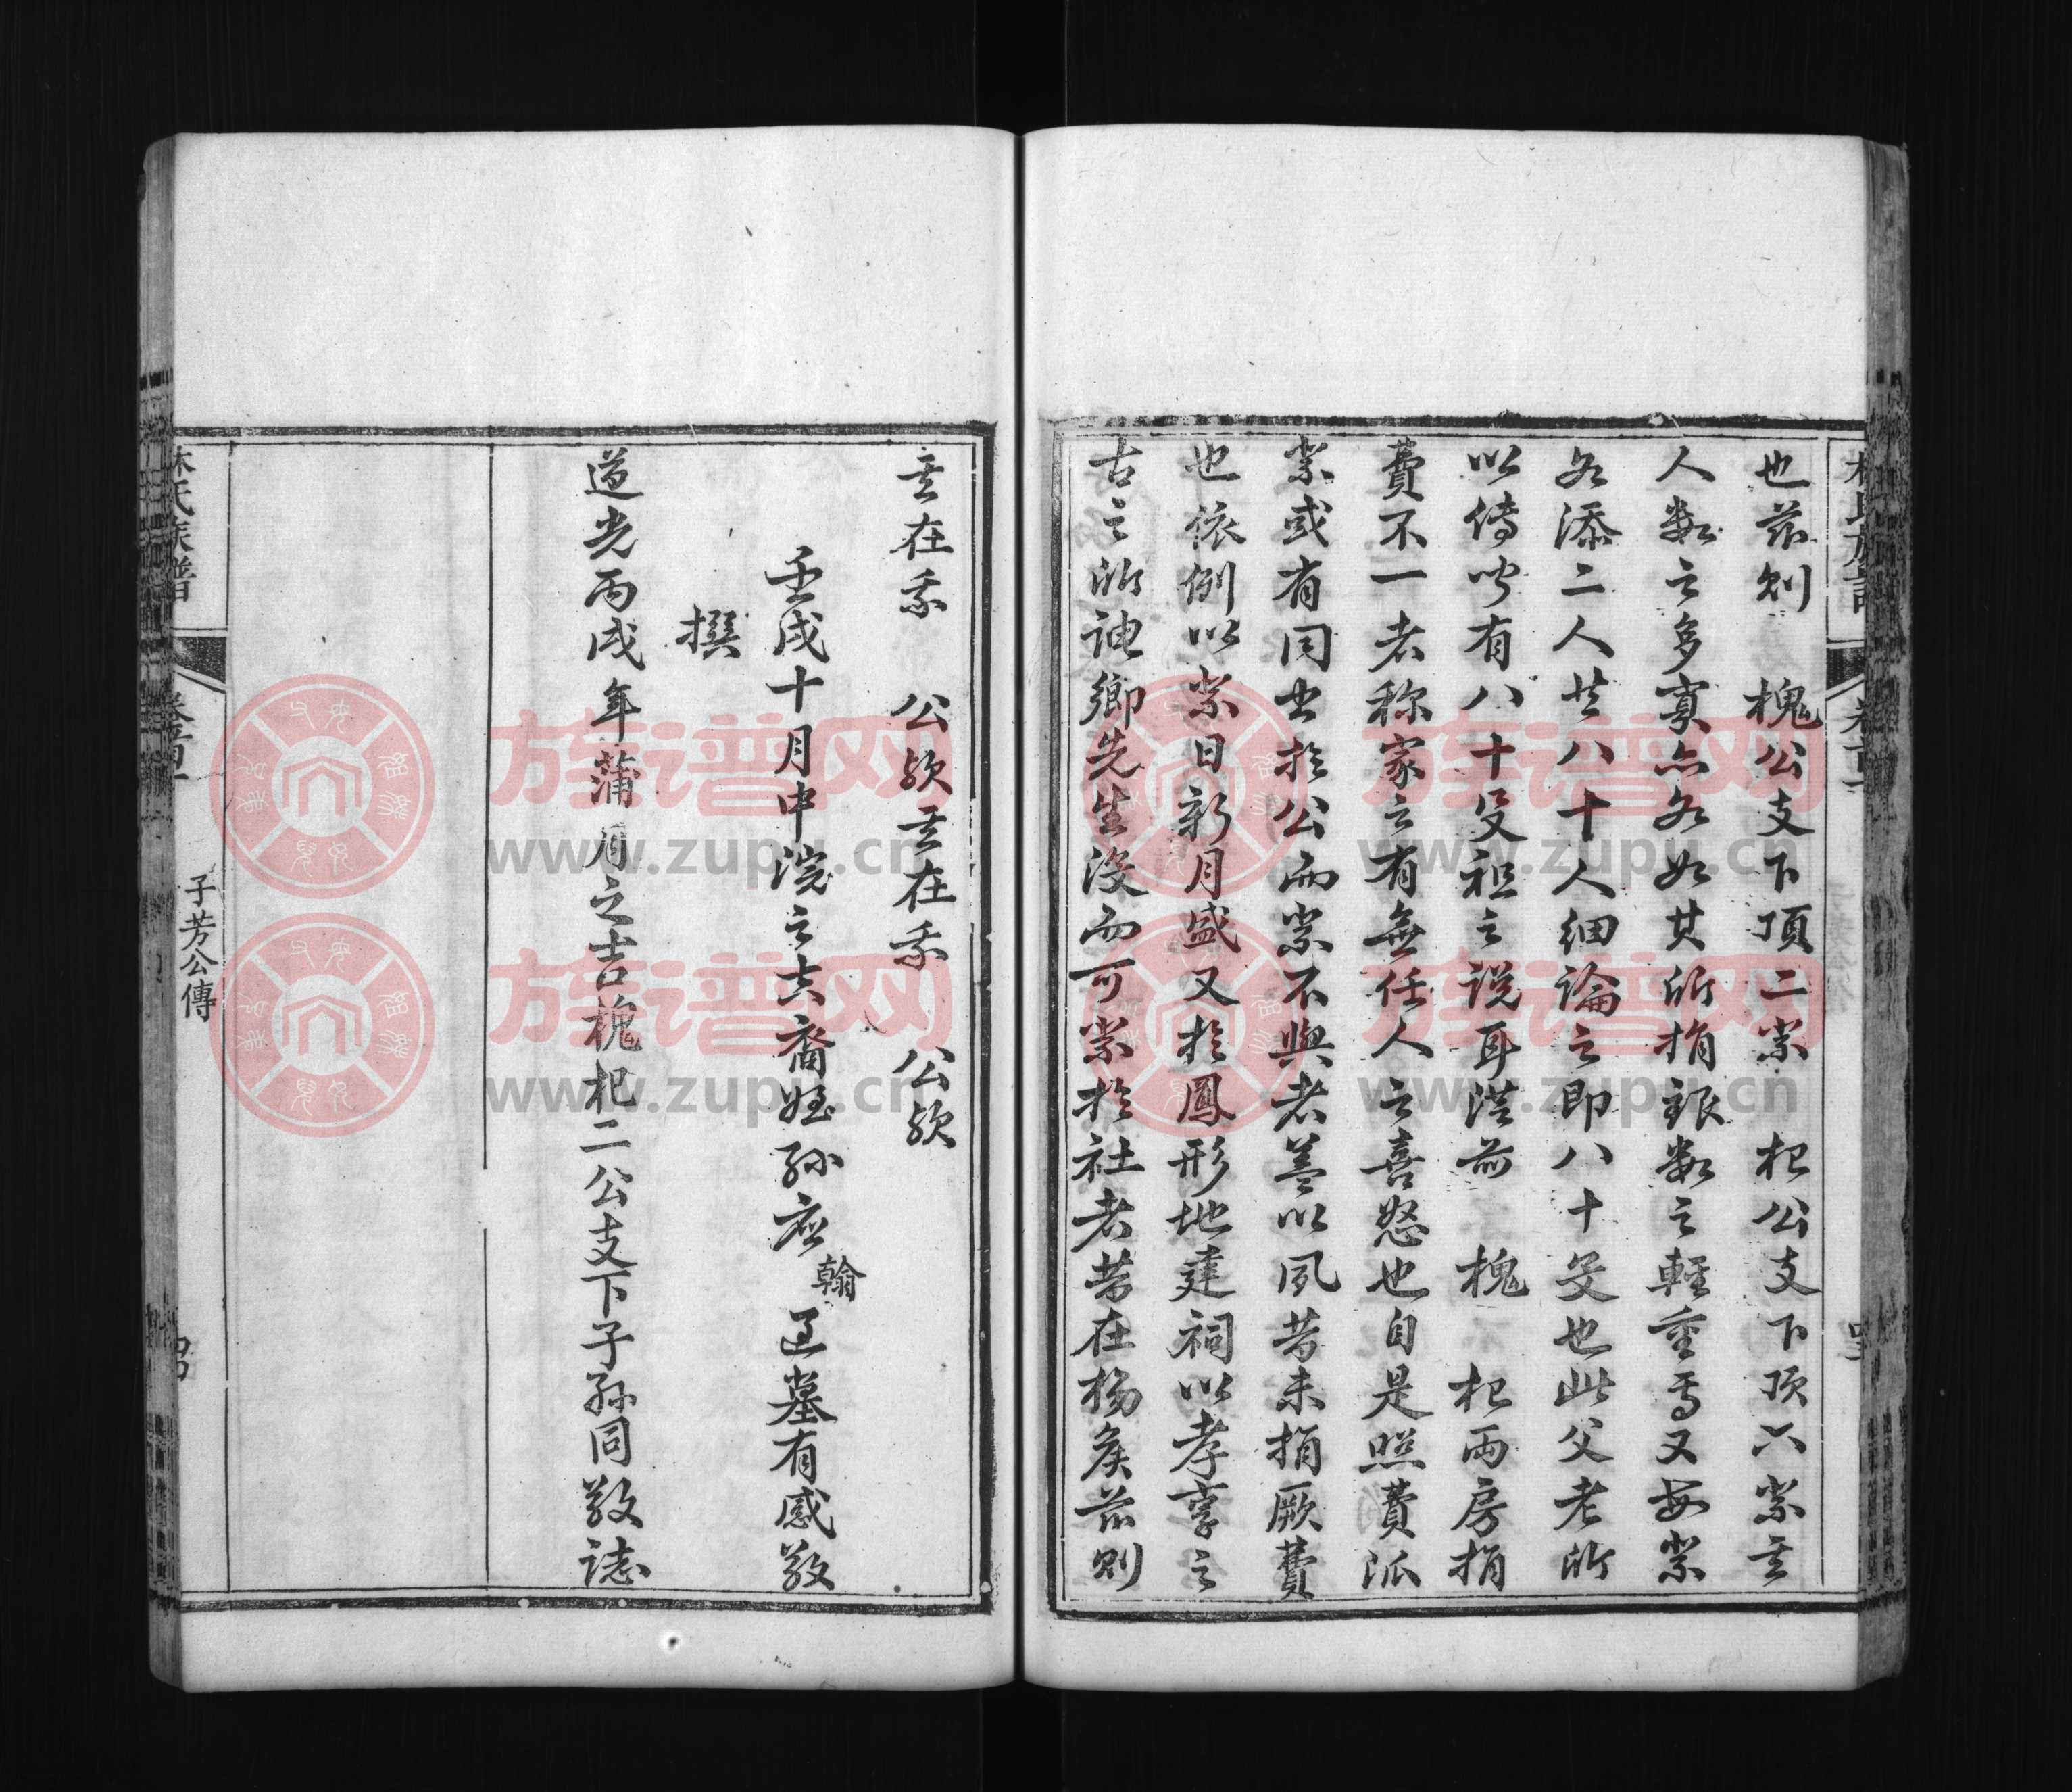 也茲則　槐公支下頂二崇　杞公支下頂六崇其
人數之多寡亦各如其所捐銀數之輕重焉又每崇
各添二人共八十人細論之即八十受也此父老所
以傳以有八十受祖之說耳溯前　槐　杞兩房捐
費不一者称家之有無任人之喜怒也自是照費派
崇或有同出於公而崇不與者蓋以夙昔未捐厥費
也依例以崇日新月盛又於鳳形地建祠以孝享之
古之所謂鄉先生沒而可崇於社者昔在楊矣茲則
其在吾　公歟其在吾　公歟
壬戌十月中浣之吉裔姪孫應翰正墓有感敬
撰
道光丙戌年蒲月之吉槐杞二公支下子孫同敬誌
林氏族譜
子芳公傳
族谱网
www.zupu.cn
族谱网
www.zupu.cn
族谱网
www.zupu.cn
族谱网
www.zupu.cn